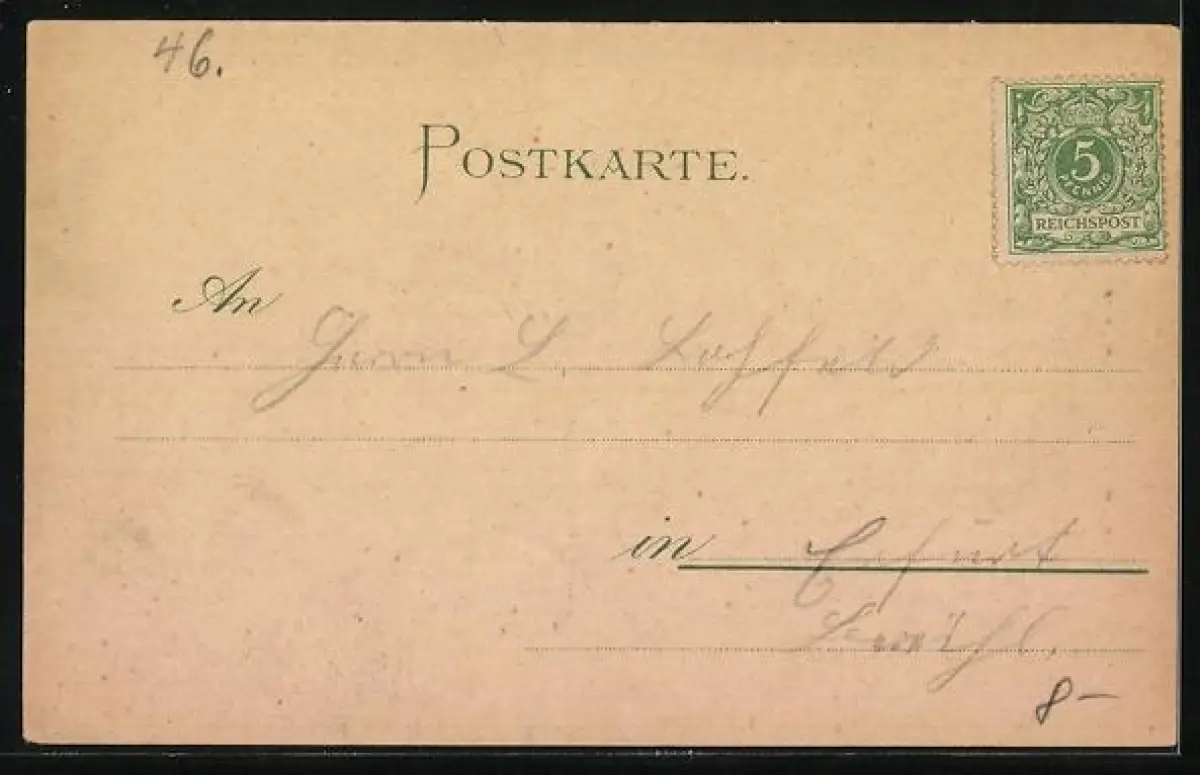 46.
POSTKARTE.
5
PFENNIG
REICHSPOST
An
Herrn L.
in Erfurt
8-